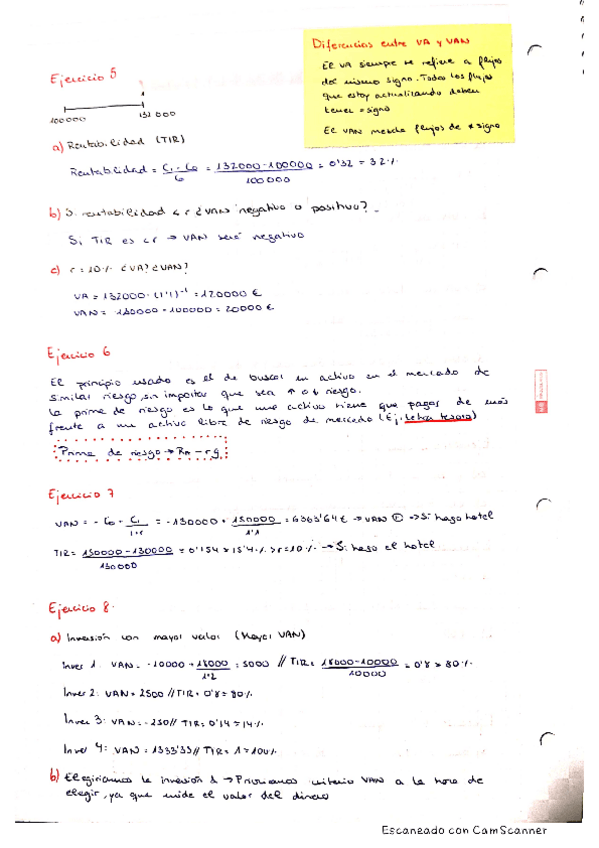 Diferencias entre VA y VAN
El VA siempre se refiere a flujos
del mismo signo. Todos los flujos
que estoy actualizando deben
tener = signo
El VAN mezcla flujos de ≠ signo
Ejercicio 5
100 000 132 000
a) Rentabilidad (TIR)
Rentabilidad = C₁ - C₀ / C₀ = 132000 - 100000 / 100000 = 0'32 = 32%
b) Si rentabilidad < r ¿VAN negativo o positivo?
Si TIR es < r → VAN será negativo
c) r = 10% ¿VA? ¿VAN?
VA = 132000 · (1'1)⁻¹ = 120000 €
VAN = 120000 - 100000 = 20000 €
Ejercicio 6
El principio usado es el de buscar un activo en el mercado de
similar riesgo, sin importar que sea ↑ o ↓ riesgo.
La prima de riesgo es lo que un activo tiene que pagar de más
frente a un activo libre de riesgo de mercado (Ej. Letras tesoro)
Prima de riesgo →
Ejercicio 7
VAN = - C₀ + C₁ / 1+r = -130000 + 150000 / 1'1 = 6363'64 € → VAN ⊕ → Si hago hotel
TIR = 150000 - 130000 / 130000 = 0'154 = 15'4% > r = 10% → Si hago el hotel
Ejercicio 8.
a) Inversión con mayor valor (Mayor VAN)
Inver 1: VAN = -10000 + 18000 / 1'2 = 5000 // TIR = 18000 - 10000 / 10000 = 0'8 = 80%
Inver 2: VAN = 2500 // TIR = 0'8 = 80%
Inver 3: VAN = -250 // TIR = 0'14 = 14%
Inver 4: VAN = 1333'33 // TIR = 1 = 100%
b) Elegiríamos la inversión 1 → Priorizamos criterio VAN a la hora de
elegir, ya que mide el valor del dinero
Escaneado con CamScanner